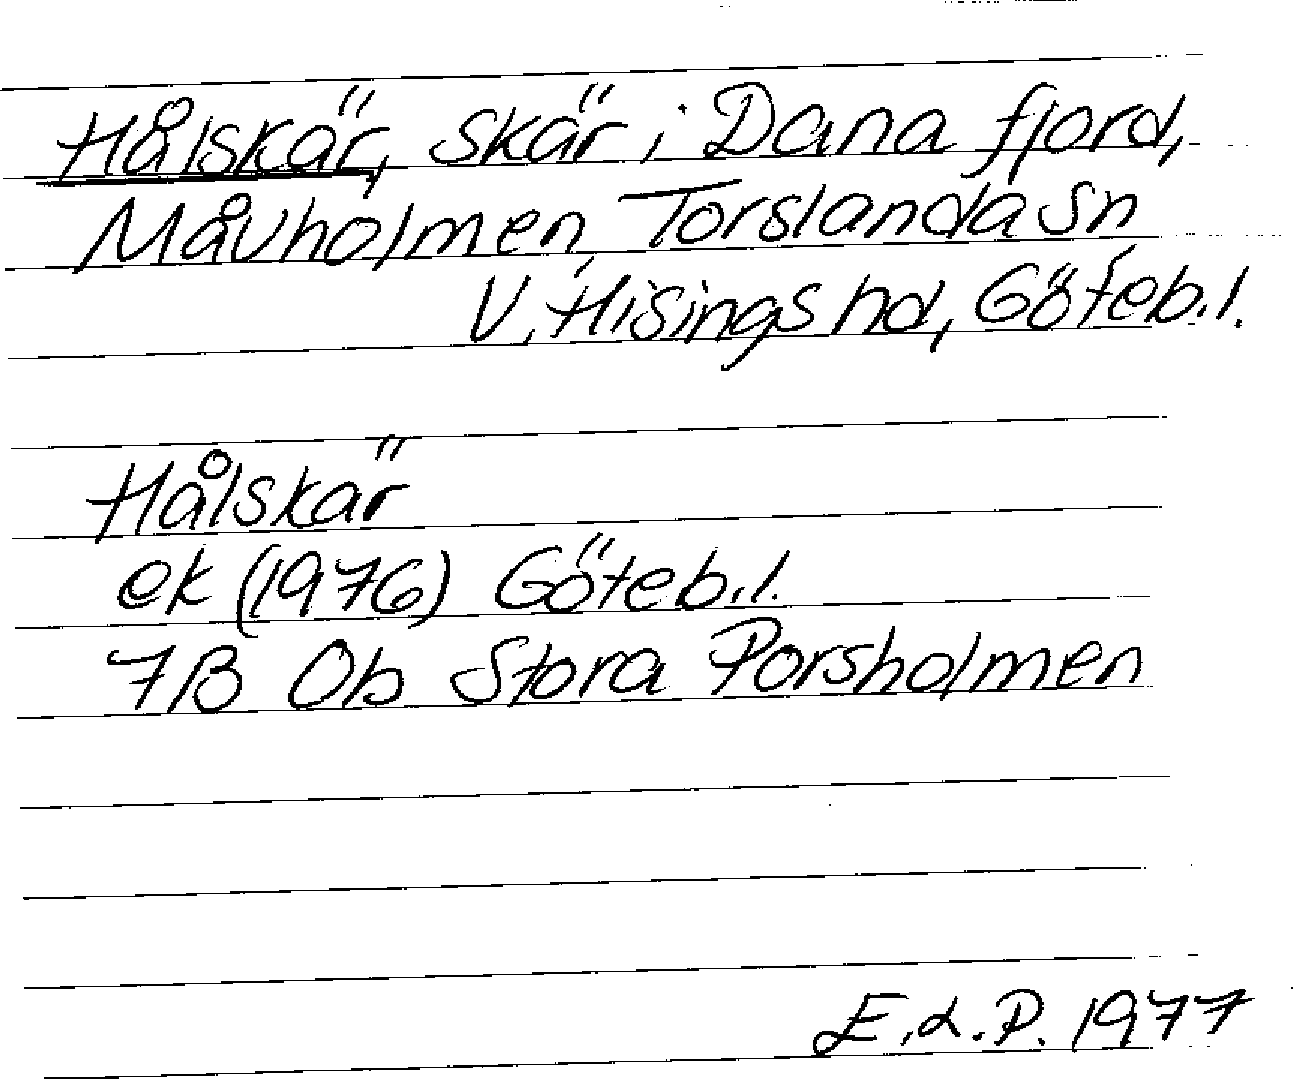 Hålskär, skär i Dana fjord,
Måvholmen, Torslanda sn
V. Hisings hd, Göteb. l.
Hålskär
ek (1976) Göteb. l.
7B 0b Stora Porsholmen
E. d. P. 1977